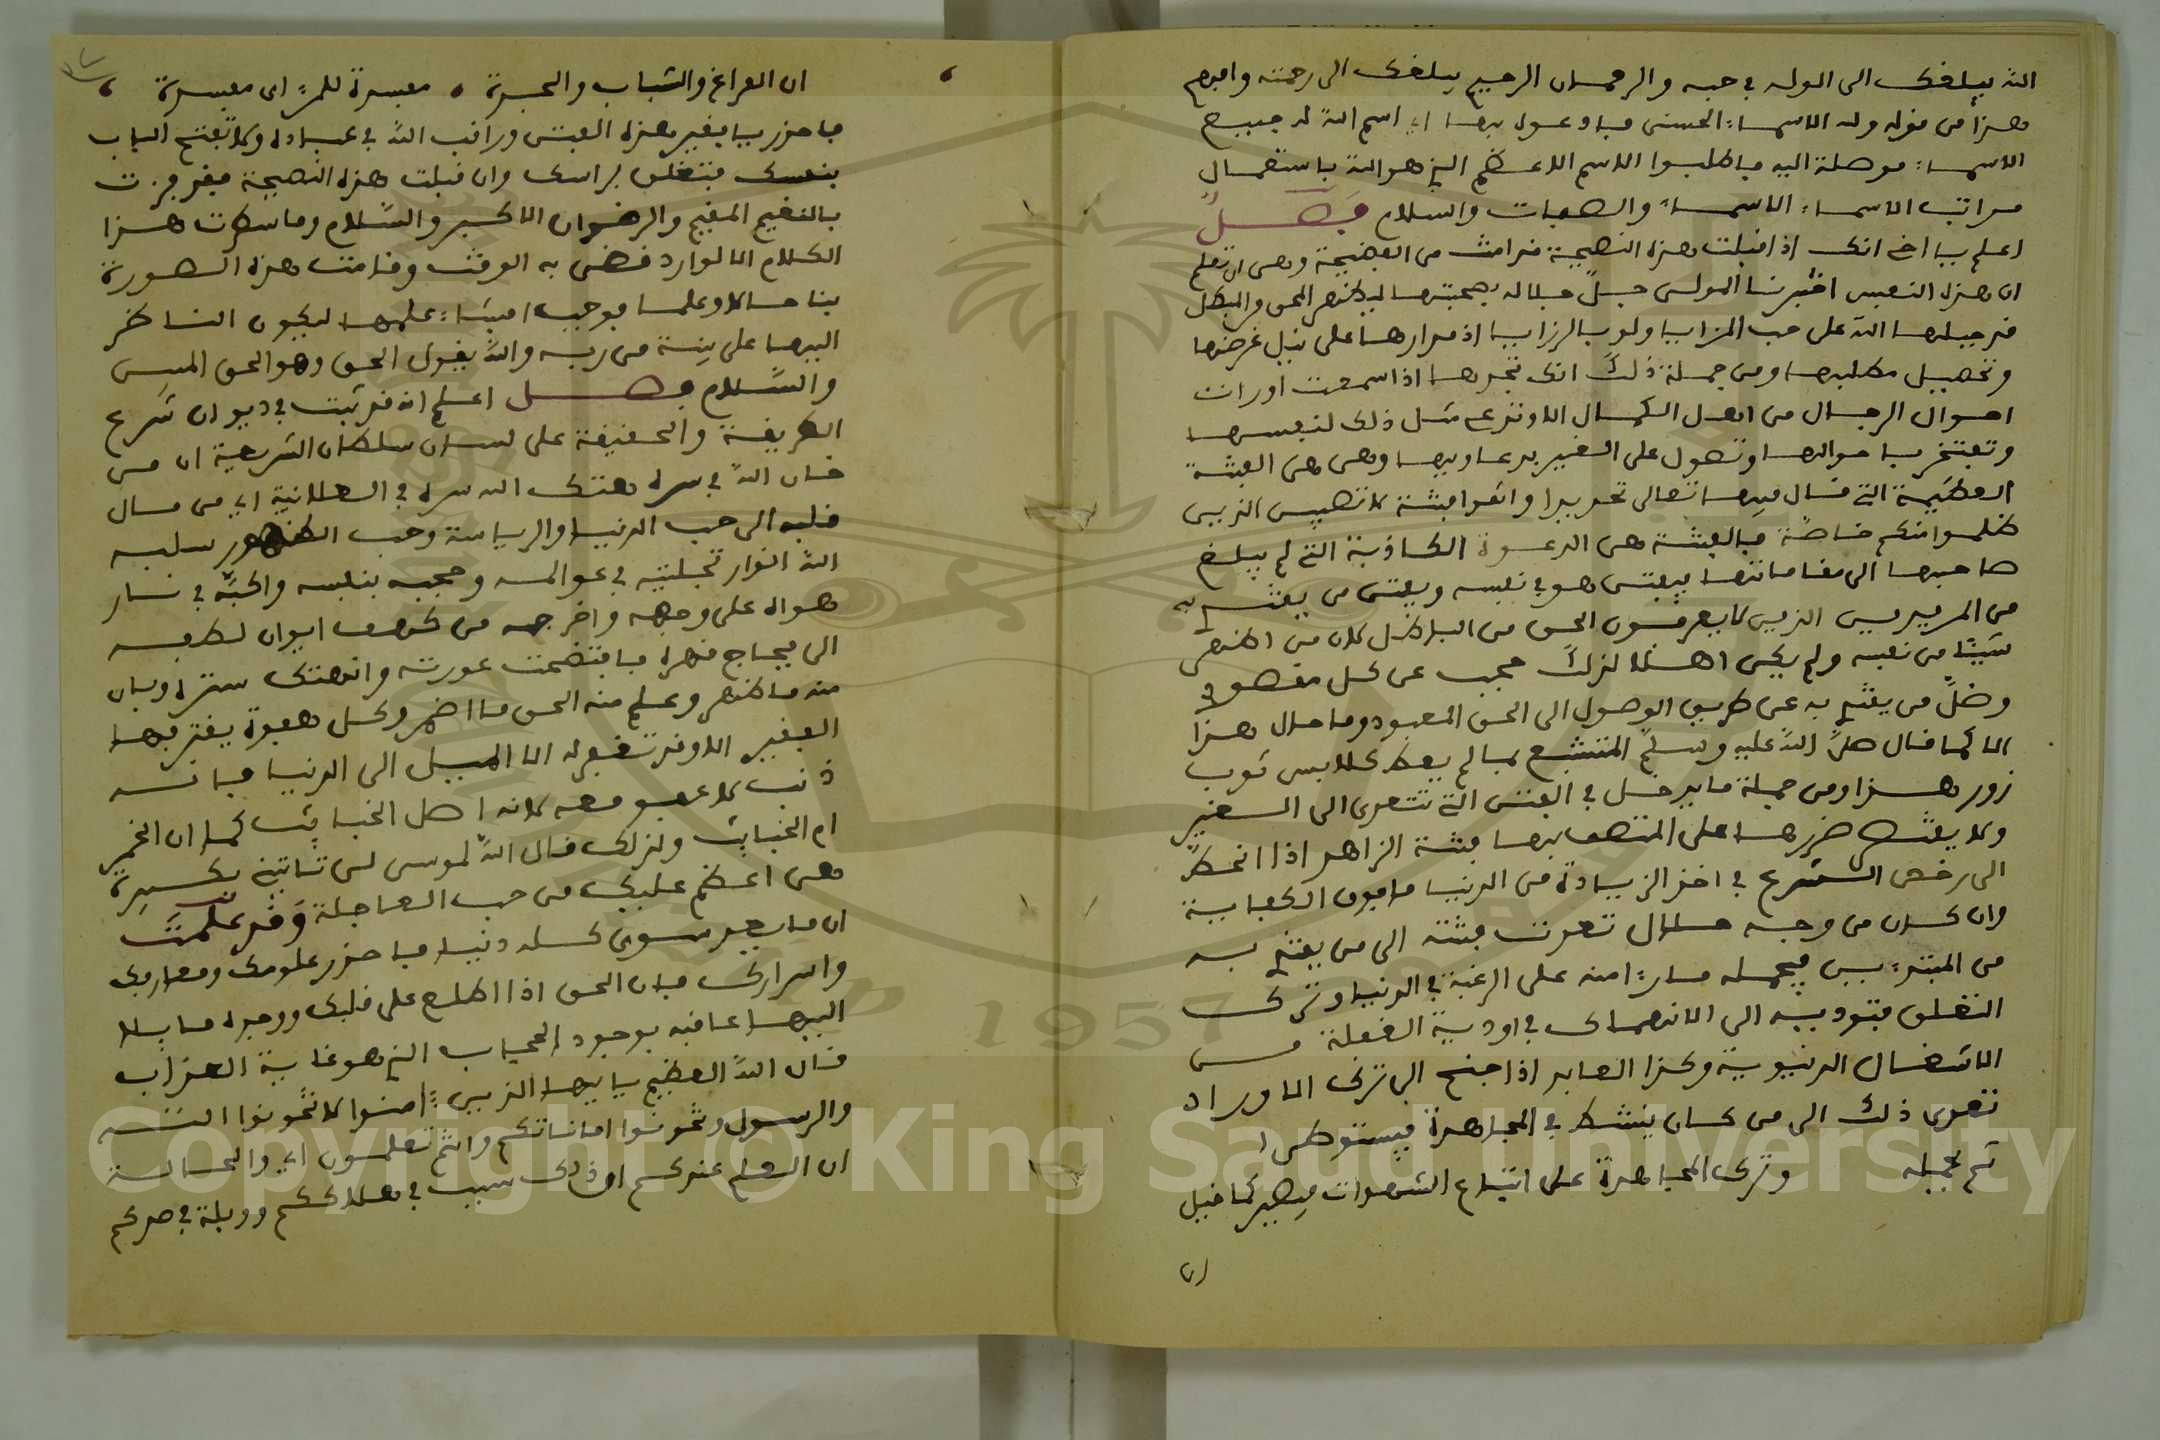 الله يبلغك الى الوله في حبه والرحمان الرحيم يبلغك الى رحمته وافهم
هذا من قوله وله الاسماء الحسنى فادعوه بها اي اسم الله له جميع
الاسماء موصلة اليه فاطلبوا الاسم الاعظم الذي هو الله باستعمال
مراتب الاسماء الاسماء والصفات والسلام فصل
اعلم يا اخي انك اذا قبلت هذه النصيحة قد امنت من الفضيحة وهي ان تعلم
ان هذه النفس اختبرنا المولى جل جلاله بصحبتها ليظهر المحق والمبطل
قد جبلها الله على حب المزايا ولو بالرزايا اذ مدارها على نيل غرضها
وتحصيل مطلبها ومن جملة ذلك انك تجدها اذا سمعت او رات
احوال الرجال من اهل الكمال الا وتدعي مثل ذلك لنفسها
وتفتخر باحوالها وتصول على الغير بدعاويها وهي هي الفتنة
العظيمة التي قال فيها تعالى تحذيرا واتقوا فتنة لا تصيبن الذين
ظلموا منكم خاصة فالفتنة هي الدعوة الكاذبة التي لم يبلغ
صاحبها الى مقاماتها فيفتن هو في نفسه ويفتن من يقتدي به
من المريدين الذين لا يعرفون الحق من الباطل لان من اظهر
شيئا من نفسه ولم يكن اهلا لذلك حجب عن كل مقصود
وضل من يقتدي به عن طريق الوصول الى الحق المعبود وما حال هذا
الا كما قال صلى الله عليه وسلم المتشبع بما لم يعط كلابس ثوب
زور هذا ومن جملة ما يدخل في الفتن التي تتعدى الى الغير
ولا يقتصر ضررها على المتصف بها فتنة الزاهد اذا انحط
الى رخص الشرع في اخذ الزيادة من الدنيا ما فوق الكفاية
وان كان من وجه حلال تعدت فتنته الى من يقتدي به
من المبتدءين فيحمله ما راء منه على الرغبة في الدنيا وترك
التقلل فتوديه الى الانهماك في اودية الغفلة من
الاشغال الدنيوية وكذا العابد اذا جنح الى ترك الاوراد
تعدى ذلك الى من كان ينشط في المجاهدة فيستوطي
وترك المجاهدة على اتباع الشهوات فيصير كما قيل
ان الفراغ والشباب والجدة ، مفسدة للمرء اي مفسدة
فاحذر يا فقير هذه الفتن وراقب الله في عباده ولا تفتح الباب
بنفسك فتغلق براسك وان قبلت هذه النصيحة فقد فزت
بالنعيم المقيم والرضوان الاكبر والسلام وما سطرت هذا
الكلام الا لوارد قضى به الوقت وقامت هذه الصورة
بنا حالا وعلما فوجب افشاء علمها ليكون الناظر
اليها على بينة من ربه والله يقول الحق وهو الحق المبين
والسلام فصل اعلم انه قد ثبت في ديوان شرع
الطريقة والحقيقة على لسان سلطان الشريعة ان من
خان الله في سره هتك الله سره في العلانية اي من مال
قلبه الى حب الدنيا والرياسة وحب الظهور سلبه
الله انوار تجليته في عوالمه وحجبه بنفسه واكبه في نار
هواه على وجهه واخرجه من كهف ايوان لطفه
الى فجاج قهره فافتضحت عورته وانهتك ستره وبان
منه ما ظهر وعلم منه الحق ما اضمر وكل هفوة يقترفها
الفقير الا وقد تغفر له الا الميل الى الدنيا فانه
ذنب لا عفو معه لانه اصل الخبائث كما ان الخمر
ام الخبائث ولذلك قال الله لموسى لن تاتيني بكبيرة
هي اعظم عليك من حب العاجلة وقد علمت
ان ما بعد سوى كله دنيا فاحذر علومك ومعارفك
واسرارك فان الحق اذا اطلع على قلبك ووجده مايلا
اليها عاقبه بوجود الحجاب الذي هو غاية العذاب
قال الله العظيم يا ايها الذين ءامنوا لا تخونوا الله
والرسول وتخونوا اماناتكم وانتم تعلمون اي والحالة
ان العلم عندكم ان ذلك سبب في هلاككم ووبلة في صدكم